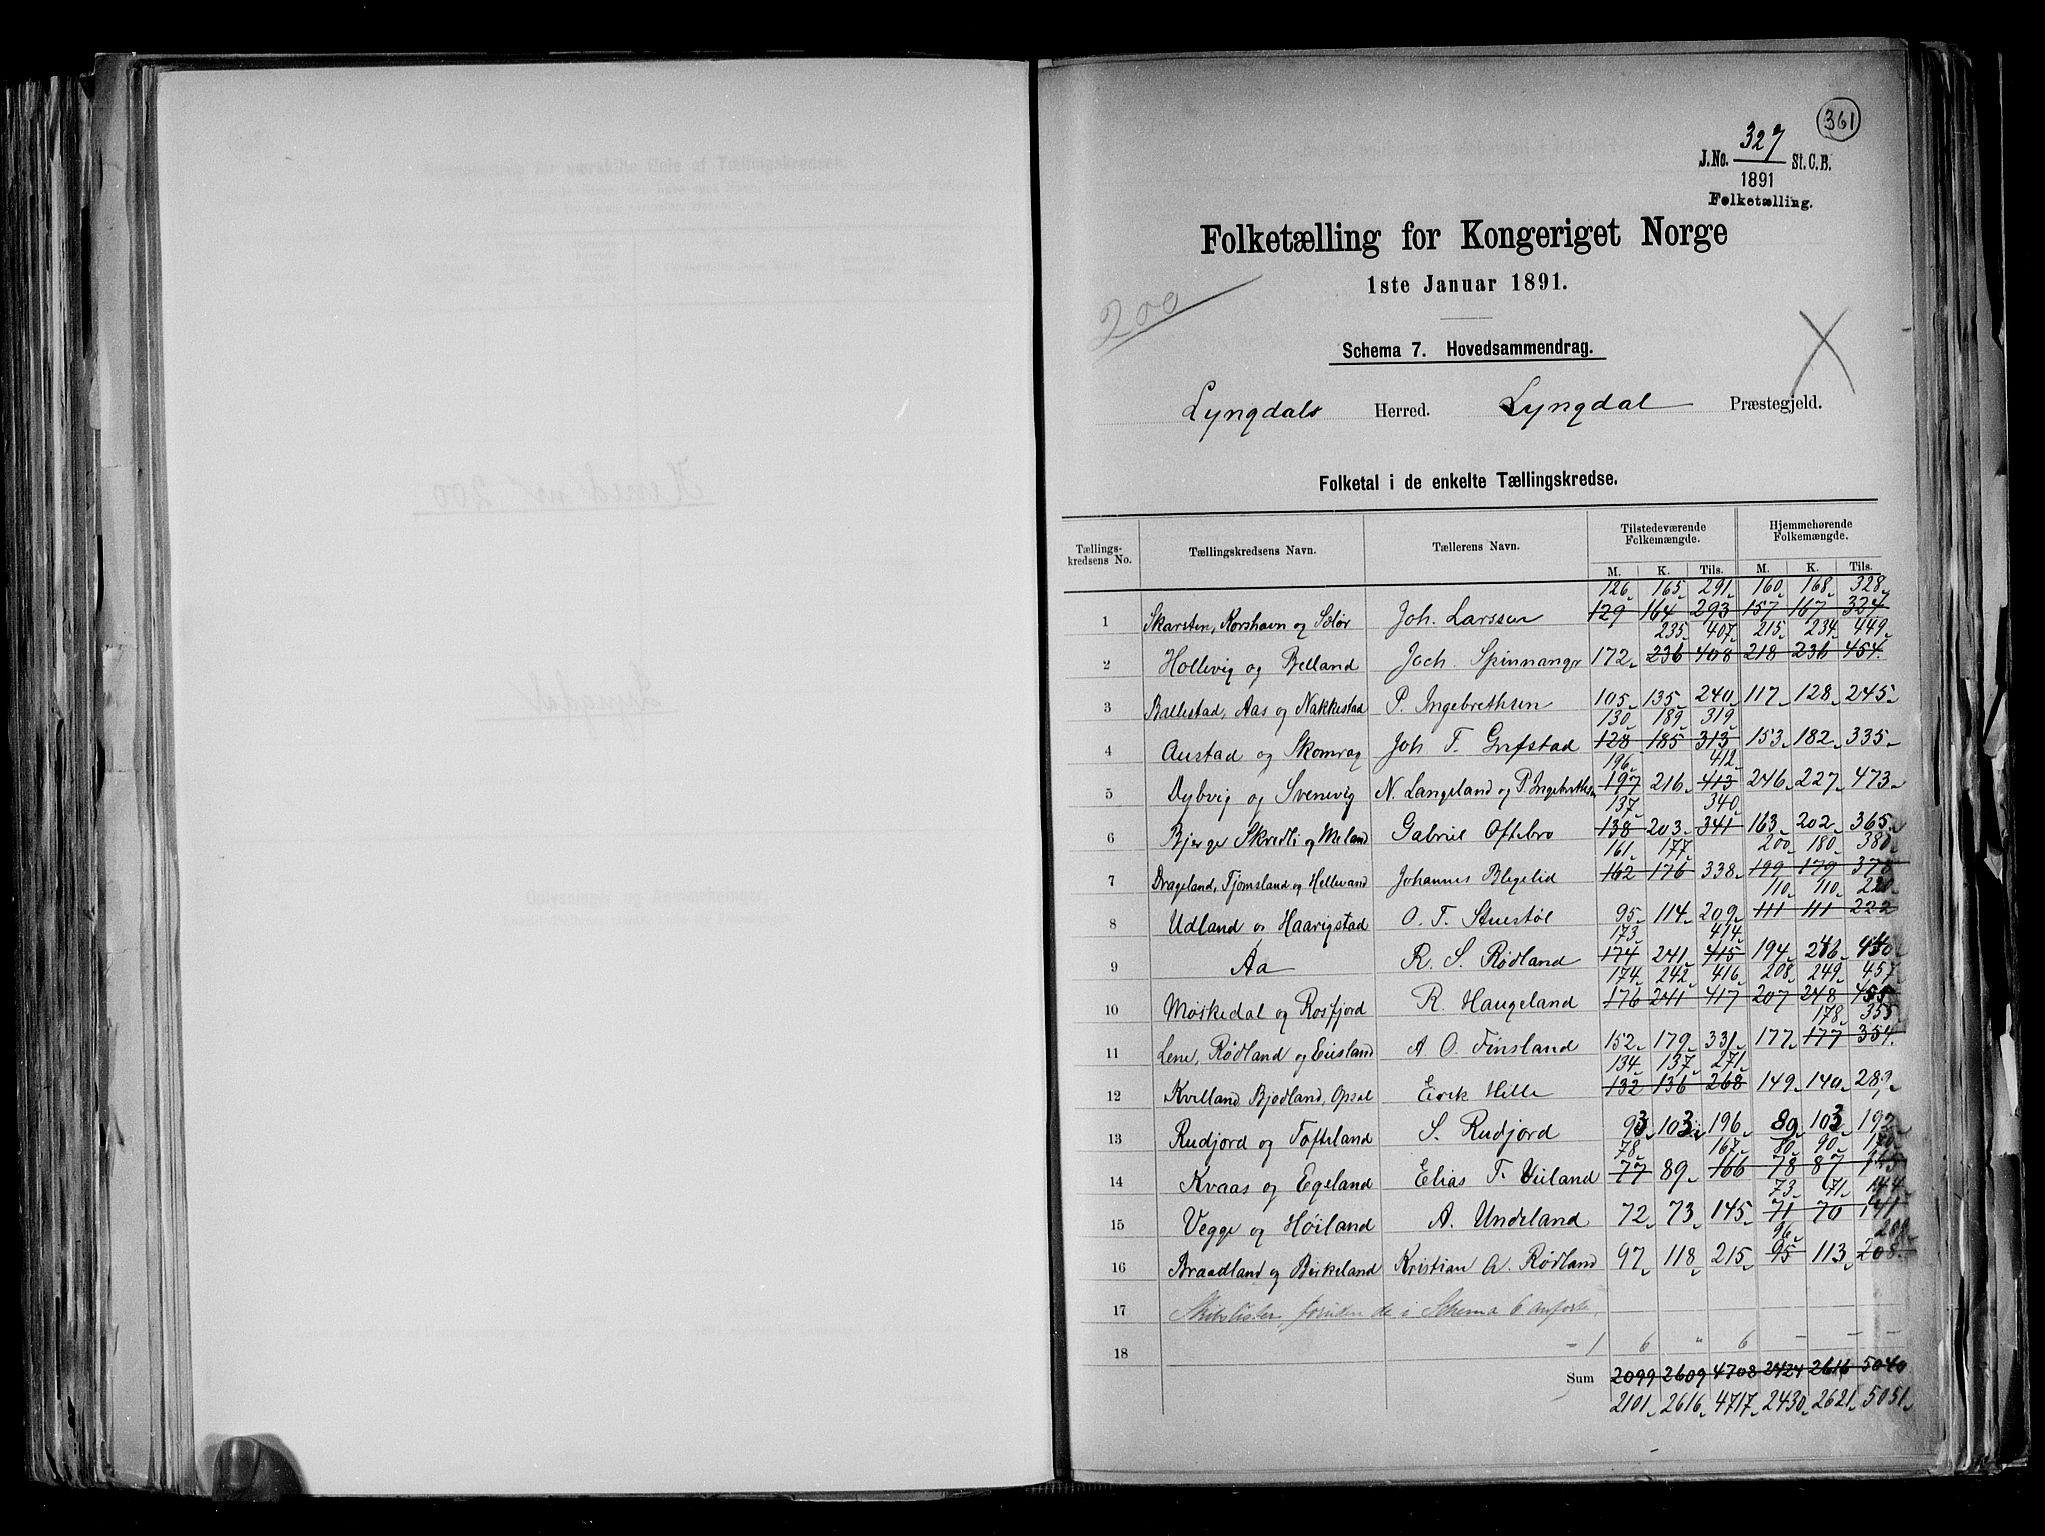 361
J. No. 327 St. C. B.
1891
Folketælling.
Folketælling for Kongeriget Norge
1ste Januar 1891.
200
Schema 7. Hovedsammendrag.
Lyngdals Herred. Lyngdal Præstegjeld.
Folketal i de enkelte Tællingskredse.
Tællings-kredsens No. Tællingskredsens Navn. Tællerens Navn. Tilstedeværende Folkemængde. Hjemmehørende Folkemængde.
M. K. Tils. M. K. Tils.
126 165 291 160 168 328
1 Skarsten, Korshavn og Sælør Joh. Larssen 129 164 293 157 167 324
235 407 215 234 449
2 Hollevig og Belland Joch. Spinnangr 172 236 408 218 236 454
3 Ballestad, Aas og Nakkestad P. Ingebrethsen 105 135 240 117 128 245
130 189 319
4 Austad og Skomrag Joh. T. Grefstad 128 185 313 153 182 335
196 412
5 Dybvig og Svenevig N. Langeland og P. Ingebrethsen 197 216 413 246 227 473
137 340
6 Bjerge Skredli og Meland Gabriel Oftebro 138 203 341 163 202 365
161 177 200 180 380
7 Drageland, Tjomsland og Hellevand Johannes Blegelid 162 176 338 199 179 378
110 110 220
8 Udland og Haarigstad O. T. Stuestøl 95 114 209 111 111 222
173 414
9 Aa R. S. Rødland 174 241 415 194 246 440
174 242 416 208 249 457
10 Møskedal og Rosfjord R. Haugeland 176 241 417 207 248 455
178 355
11 Lene, Rødland og Eiesland A. O. Finsland 152 179 331 177 177 354
134 137 271
12 Kvelland Bjodland, Opsal Eirik Helle 132 136 268 149 140 289
13 Rudjord og Tofteland S. Rudjord 93 103 196 89 103 192
78 167 80 90 170
14 Kvaas og Egeland Elias T. Veiland 77 89 166 78 87 165
73 71 144
15 Vegge og Høiland A. Undeland 72 73 145 71 70 141
96 209
16 Braadland og Birkeland Kristian A. Rødland 97 118 215 95 113 208
17 Skibslister, foruden de i Schema 6 anførte,
18 – 1 6 " 6 – – –
Sum 2099 2609 4708 2424 2616 5040
2101 2616 4717 2430 2621 5051